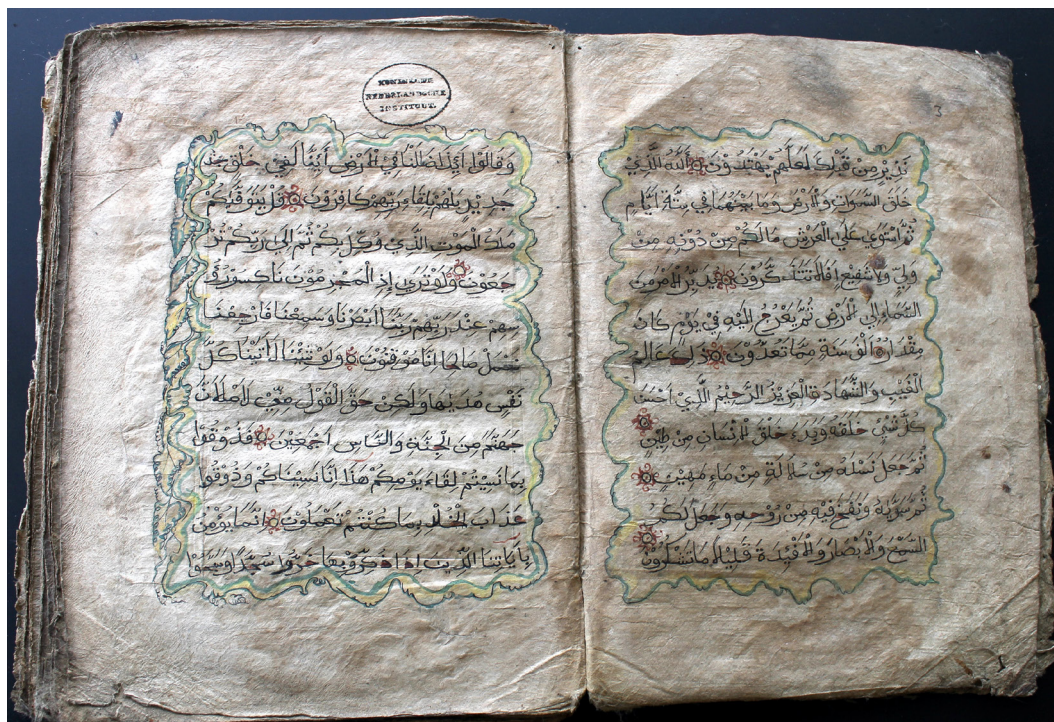 3
نَذِيْرٍ مِنْ قَبْلِكَ لَعَلَّهُمْ يَهْتَدُوْنَ اَللّٰهُ الَّذِيْ
خَلَقَ السَّمٰوَاتِ وَالْاَرْضَ وَمَا بَيْنَهُمَا فِيْ سِتَّةِ اَيَّامٍ
ثُمَّ اسْتَوٰى عَلَى الْعَرْشِ مَالَكُمْ مِنْ دُوْنِهِ مِنْ
وَلِيٍّ وَلَا شَفِيْعٍ اَفَلَا تَتَذَكَّرُوْنَ يُدَبِّرُ الْاَمْرَ مِنَ
السَّمَاءِ اِلَى الْاَرْضِ ثُمَّ يَعْرُجُ اِلَيْهِ فِيْ يَوْمٍ كَانَ
مِقْدَارُهُ اَلْفَ سَنَةٍ مِمَّا تَعُدُّوْنَ ذٰلِكَ عَالِمُ
الْغَيْبِ وَالشَّهَادَةِ الْعَزِيْزُ الرَّحِيْمُ الَّذِيْ اَحْسَنَ
كُلَّ شَيْءٍ خَلَقَهُ وَبَدَءَ خَلْقَ الْاِنْسَانِ مِنْ طِيْنٍ
ثُمَّ جَعَلَ نَسْلَهُ مِنْ سُلَالَةٍ مِنْ مَاءٍ مَهِيْنٍ
ثُمَّ سَوّٰىهُ وَنَفَخَ فِيْهِ مِنْ رُوْحِهِ وَجَعَلَ لَكُمُ
السَّمْعَ وَالْاَبْصَارَ وَالْاَفْئِدَةَ قَلِيْلًا مَا تَشْكُرُوْنَ
KONINKLIJK
NEDERLANDSCHE
INSTITUUT.
وَقَالُوْا اَئِذَا ضَلَلْنَا فِي الْاَرْضِ اَئِنَّا لَفِيْ خَلْقٍ جَد
جَدِيْدٍ بَلْ هُمْ بِلِقَاءِ رَبِّهِمْ كَافِرُوْنَ قُلْ يَتَوَفّٰكُمْ
مَلَكُ الْمَوْتِ الَّذِيْ وُكِّلَ بِكُمْ ثُمَّ اِلٰى رَبِّكُمْ تُرْ
جَعُوْنَ وَلَوْ تَرٰى اِذِ الْمُجْرِمُوْنَ نَاكِسُوْ رُؤُ
سِهِمْ عِنْدَ رَبِّهِمْ رَبَّنَا اَبْصَرْنَا وَسَمِعْنَا فَارْجِعْنَا
نَعْمَلْ صَالِحًا اِنَّا مُوْقِنُوْنَ وَلَوْ شِئْنَا لَاٰتَيْنَا كُلَّ
نَفْسٍ هُدٰىهَا وَلٰكِنْ حَقَّ الْقَوْلُ مِنِّيْ لَاَمْلَاَنَّ
جَهَنَّمَ مِنَ الْجِنَّةِ وَالنَّاسِ اَجْمَعِيْنَ فَذُوْقُوْا
بِمَا نَسِيْتُمْ لِقَاءَ يَوْمِكُمْ هٰذَا اِنَّا نَسِيْنَاكُمْ وَذُوْقُوْا
عَذَابَ الْخُلْدِ بِمَا كُنْتُمْ تَعْمَلُوْنَ اِنَّمَا يُؤْمِنُ
بِاٰيَاتِنَا الَّذِيْنَ اِذَا ذُكِّرُوْا بِهَا خَرُّوْا سُجَّدًا وَسَبَّحُوْا